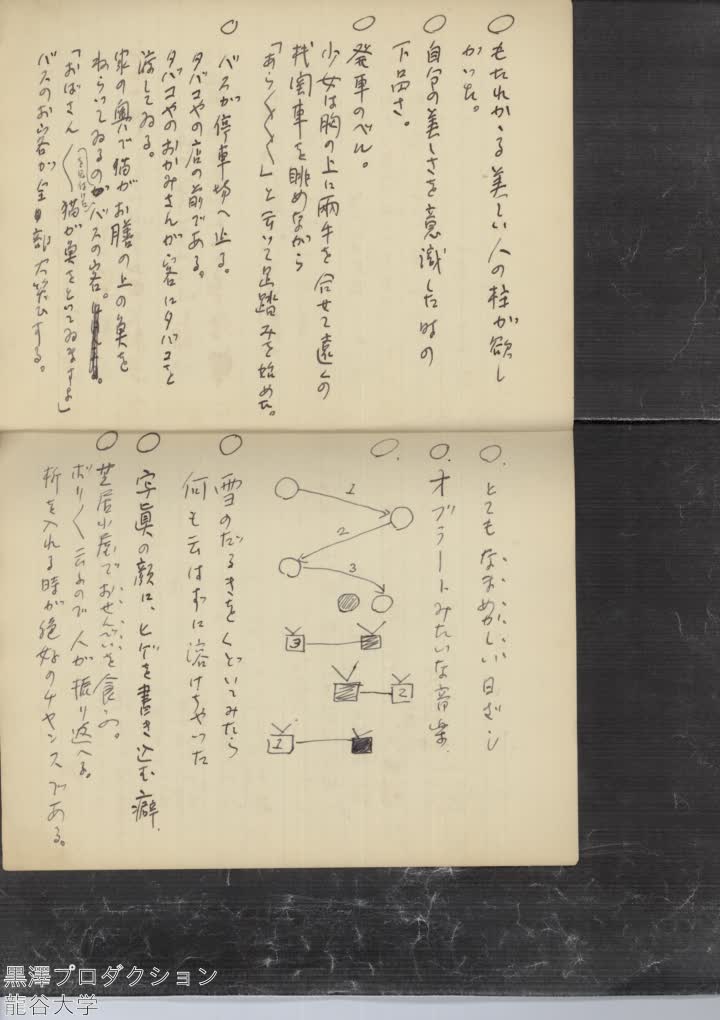 ○ もたれかゝる美しい人の柱が欲し
かった。
○ 自分の美しさを意識した時の
下品さ。
○ 発車のベル。
少女は胸の上に両手を合せて遠くの
機関車を眺めながら
「あら〱〱」と云いて足踏みを始めた。
○ バスが停車場へ止る。
タバコやの店の前である。
タバコやのおかみさんが客にタバコを
渡してゐる。
家の奥で猫がお膳の上の魚を
ねらいてゐるのがバスの客。
「おばさん〱猫が魚をとってゐますよ」
バスのお客が全部大笑ひする。
○. とてもなまめかしい日ざし
○. オブラートみたいな音楽.
○.
1
2
3
3
2
1
○ 雪のだるまをくどいてみたら
何も云はずに溶けちやった
○ 写眞の顔に、ヒゲを書き込む癖.
○ 芝居小屋でおせんべいを食ふ。
ボリ〱云ふので人が振り返へる。
析を入れる時が絶好のチャンスである。
黒澤プロダクション
龍谷大学